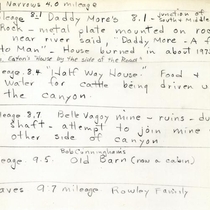 Narrows 4.0 mileage
8.1 Daddy More's 8.1 - junction of South & Middle
Rock - metal plate mounted on ro
river said, "Daddy More - A f
to Man" - House burned in about 197
"House by the side of the Road"
mileage 8.4 "Half Way House" Food &
water for cattle being driven u
the canyon.
mileage 8.7 Belle Vagoy mine - ruins - du
Shaft - attempt to join mine
other side of canyon
Bob Cunningham's
eage 9.5 Old Barn (now a cabin)
aves 9.7 mileage Rowley Family